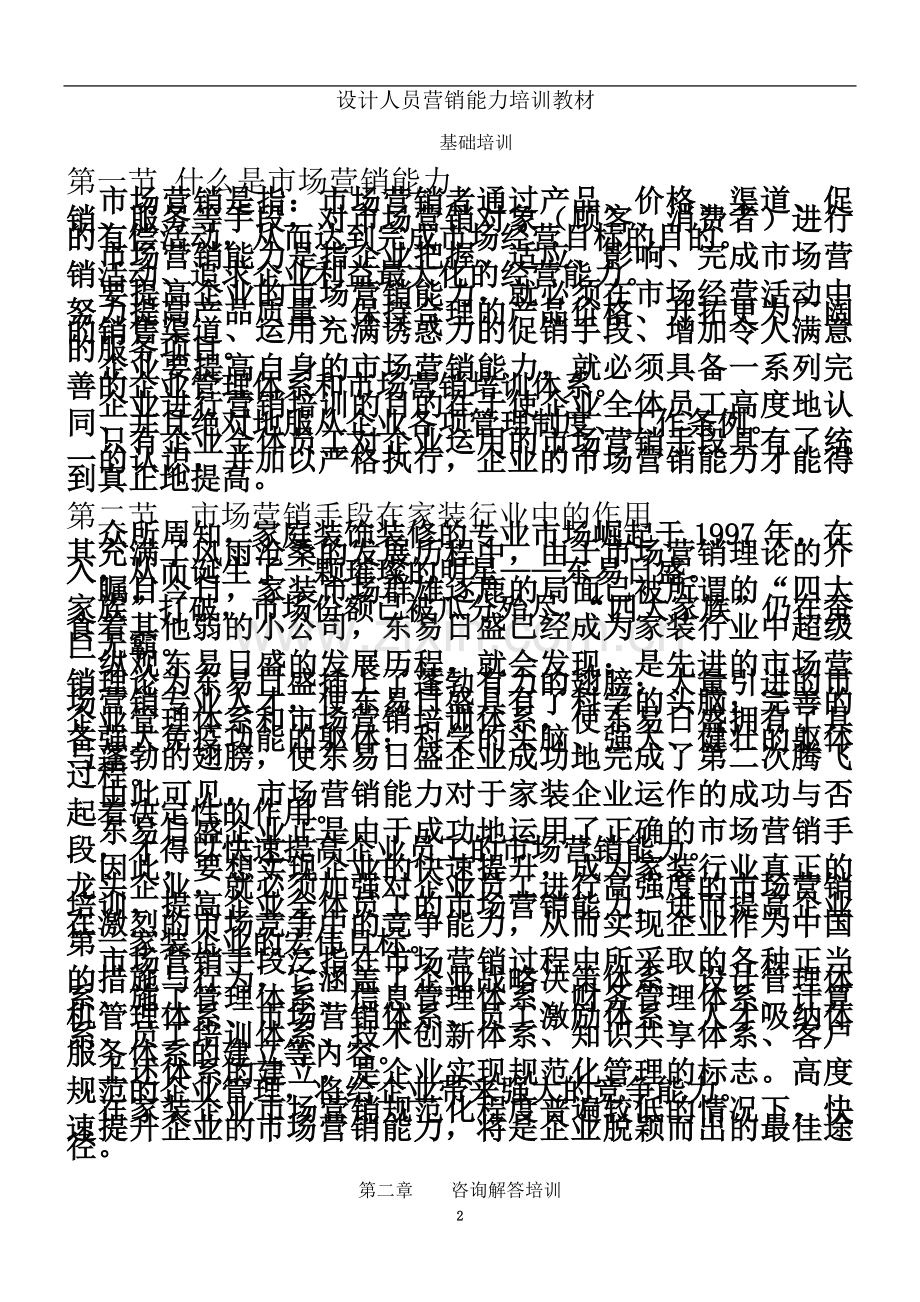 设计人员营销能力培训教材
基础培训
第一节 什么是市场营销能力
市场营销是指：市场营销者通过产品、价格、渠道、促
销、服务等手段，对市场营销对象（顾客、消费者）进行
的有偿活动，从而达到完成市场经营目标的目的。
市场营销能力是指企业把握、适应、影响、完成市场营
销活动、追求企业利益最大化的经营能力。
要提高企业的市场营销能力，就必须在市场经营活动中
努力提高产品质量、保持合理的产品价格、开拓更为广阔
的销售渠道、运用充满诱惑力的促销手段、增加令人满意
的服务项目。
企业要提高自身的市场营销能力，就必须具备一系列完
善的企业管理体系和市场营销培训体系。
企业进行营销培训的目的在于使企业全体员工高度地认
同、并且绝对地服从企业各项管理制度、工作条例。
只有企业全体员工对企业运用的市场营销手段具有了统
一的认识，并加以严格执行，企业的市场营销能力才能得
到真正地提高。
第二节 市场营销手段在家装行业中的作用
众所周知，家庭装饰装修的专业市场崛起于 1997 年，在
其充满了风雨沧桑的发展历程中，由于市场营销理论的介
入，从而诞生了一颗璀璨的明星——东易日盛。
瞩目今日，家装市场群雄逐鹿的局面已被所谓的“四大
家族”打破，市场份额已被瓜分殆尽，“四大家族”仍在吞
食着其他弱的小公司，东易日盛已经成为家装行业中超级
巨无霸。
纵观东易日盛的发展历程，就会发现：是先进的市场营
销理论为东易日盛插上了蓬勃有力的翅膀；大量引进的市
场营销专业人才，使东易日盛具有了科学的头脑；完善的
企业管理体系和市场营销培训体系，使东易日盛拥有了具
备强大免疫功能的躯体；科学的头脑、强大、健壮的躯体
与蓬勃的翅膀，使东易日盛企业成功地完成了第二次腾飞
过程。
由此可见，市场营销能力对于家装企业运作的成功与否
起着决定性的作用。
东易日盛企业正是由于成功地运用了正确的市场营销手
段，才得以快速提高企业员工的市场营销能力。
因此，要想实现企业的快速提升，成为家装行业真正的
龙头企业，就必须加强对企业员工进行高强度的市场营销
培训，提高企业全体员工的市场营销能力，进而提高企业
在激烈的市场竞争中的竞争能力，从而实现企业作为中国
第一家装企业的宏伟目标。
市场营销手段泛指在市场营销过程中所采取的各种正当
的措施与行为，它涵盖了企业战略决策体系、设计管理体
系、施工管理体系、信息管理体系、财务管理体系、计算
机管理体系、市场营销体系、员工激励体系、人才吸纳体
系、员工培训体系、技术创新体系、知识共享体系、客户
服务体系的建立等内容。
上述体系的建立，是企业实现规范化管理的标志。高度
规范的企业管理，将给企业带来强大的竞争能力。
在家装企业市场营销规范化程度普遍较低的情况下，快
速提升企业的市场营销能力，将是企业脱颖而出的最佳途
径。
第二章 咨询解答培训
2